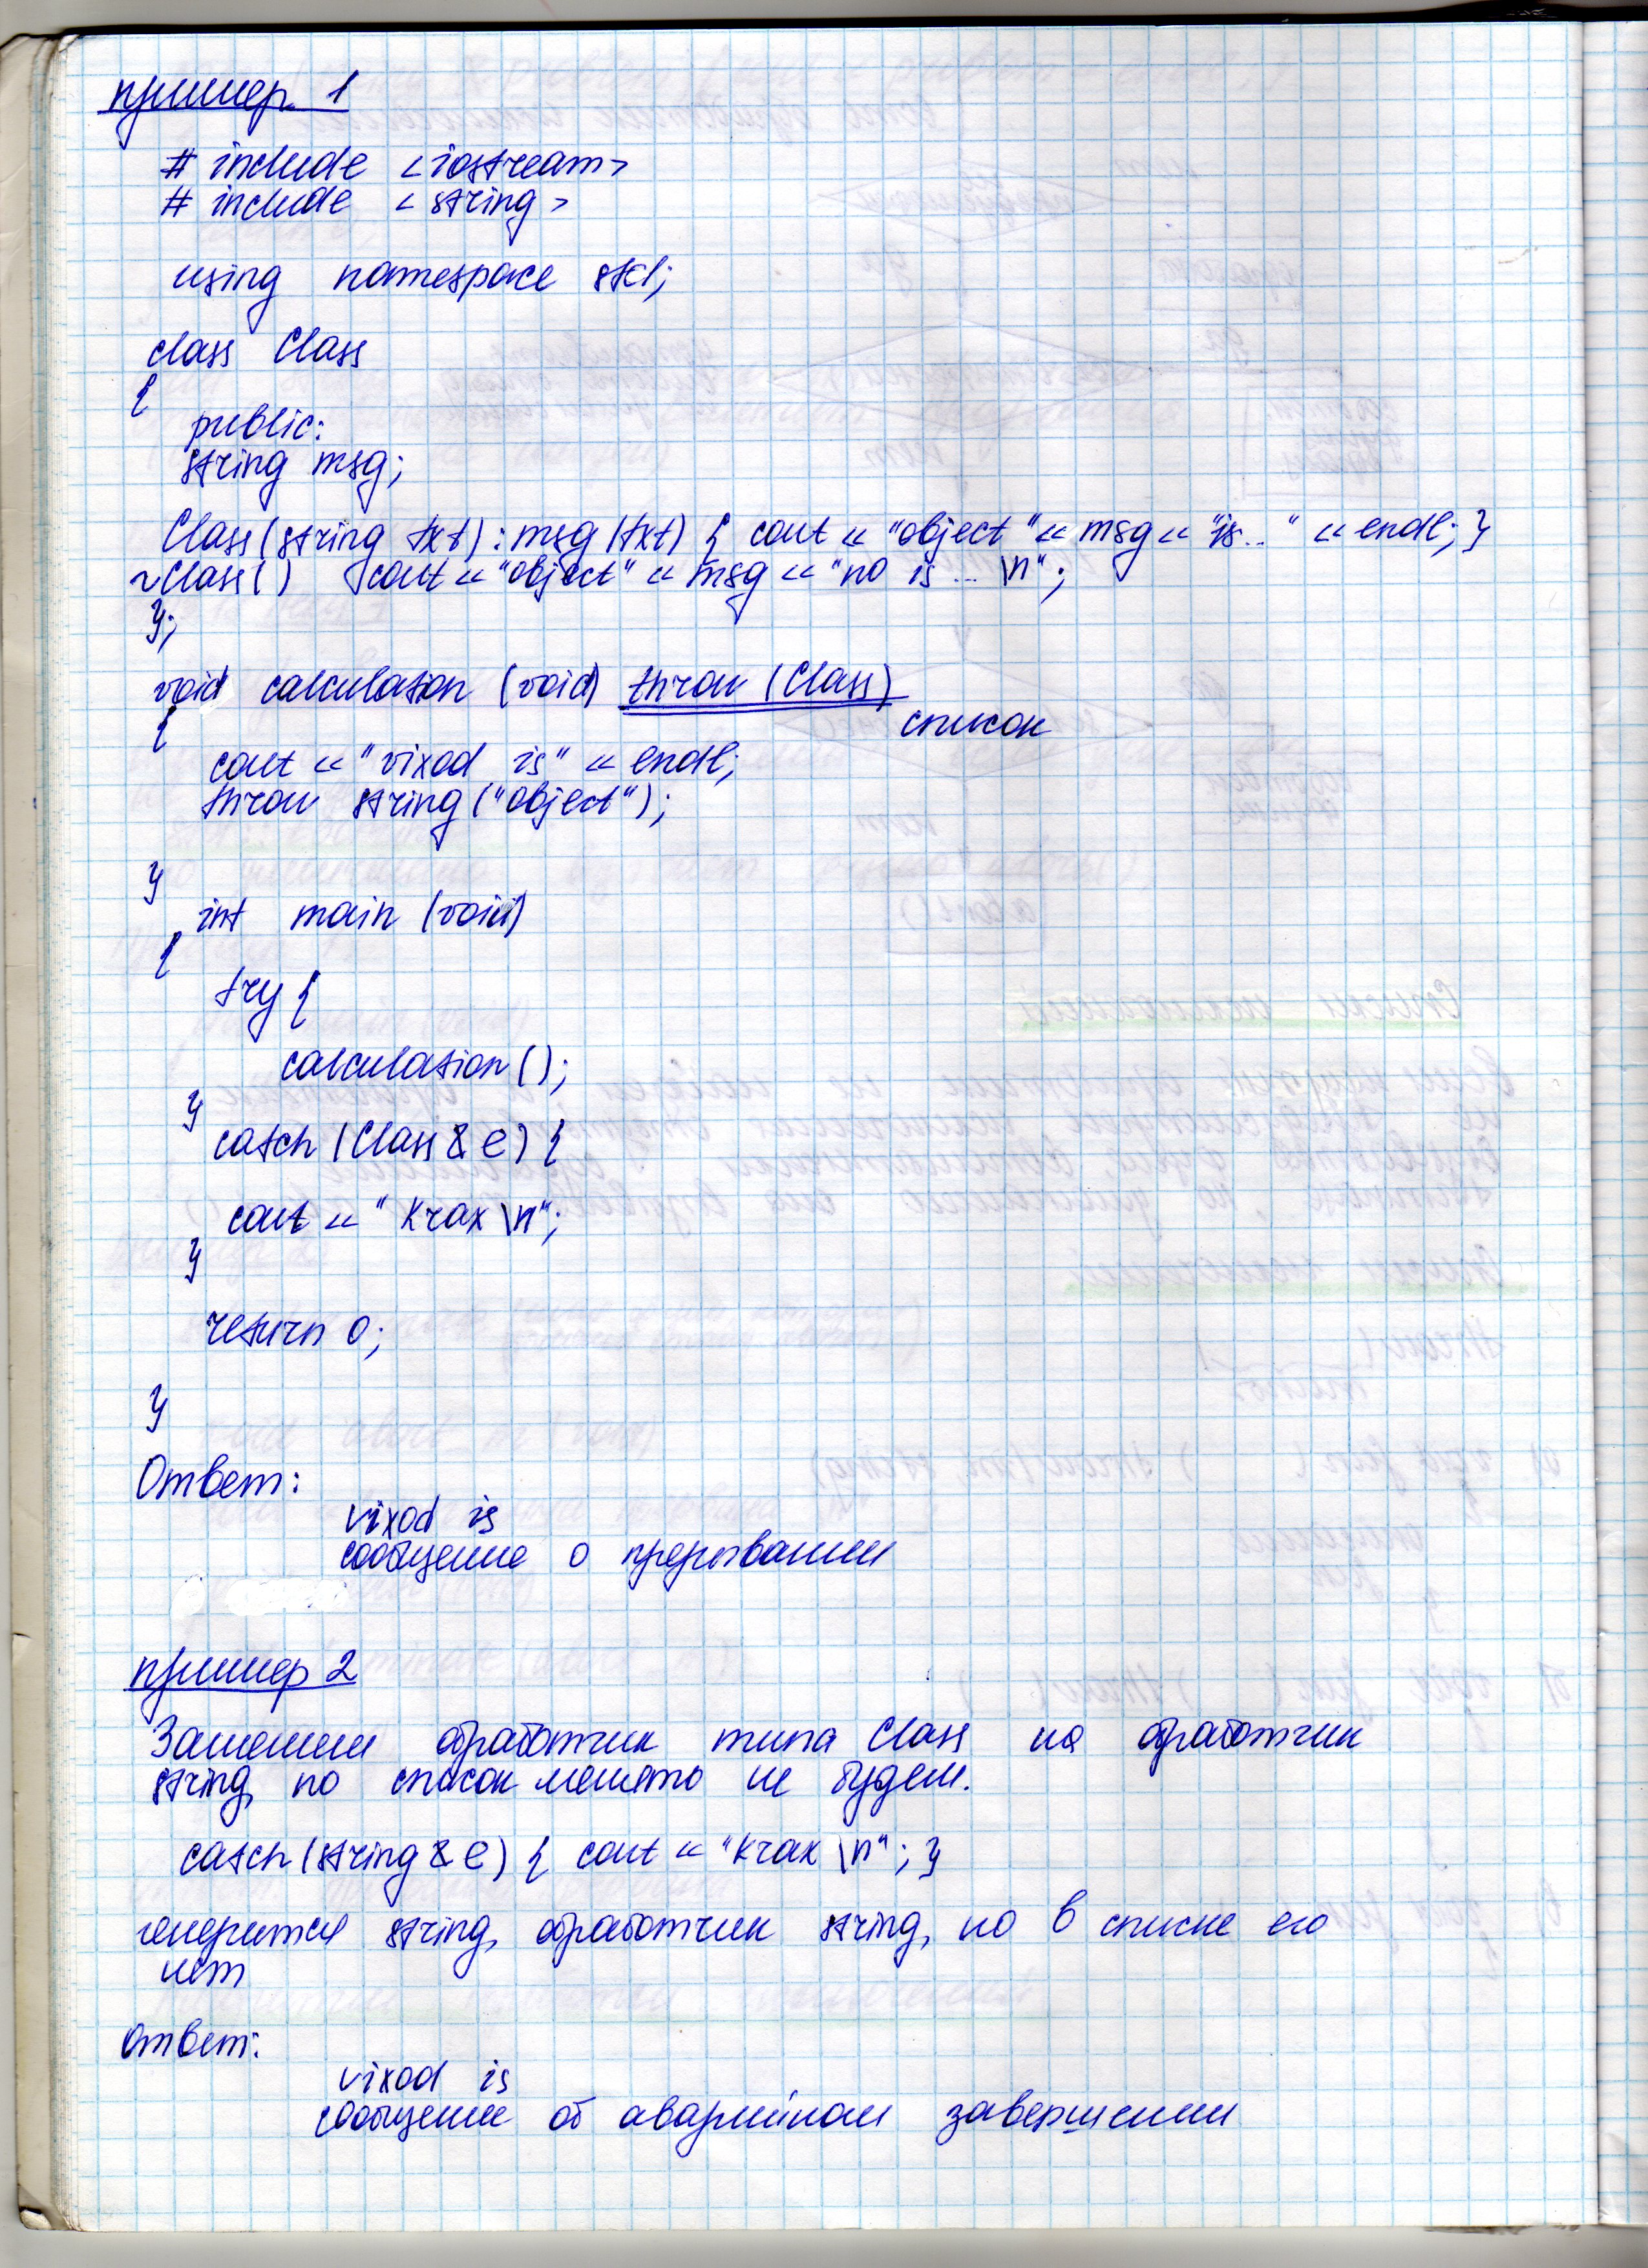 пример 1
# include <iostream>
# include <string>
using namespace std;
class Class
{
public:
string msg;
Class(string txt):msg(txt) { cout << "object" << msg << "is..." << endl; }
~Class() cout << "object" << msg << "no is... \n";
};
void calculation (void) throw (Class)
список
{
cout << "vixod is" << endl;
throw string("object");
}
int main (void)
{
try {
calculation();
}
catch (Class & e) {
cout << "krax \n";
}
return 0;
}
Ответ:
vixod is
сообщение о прерывании
пример 2
Заменим обработчик типа Class на обработчик
string, но список менять не будем.
catch(string & e) { cout << "krax \n"; }
генерится string, обработчик string, но в списке его
нет
Ответ:
vixod is
сообщение об аварийном завершении